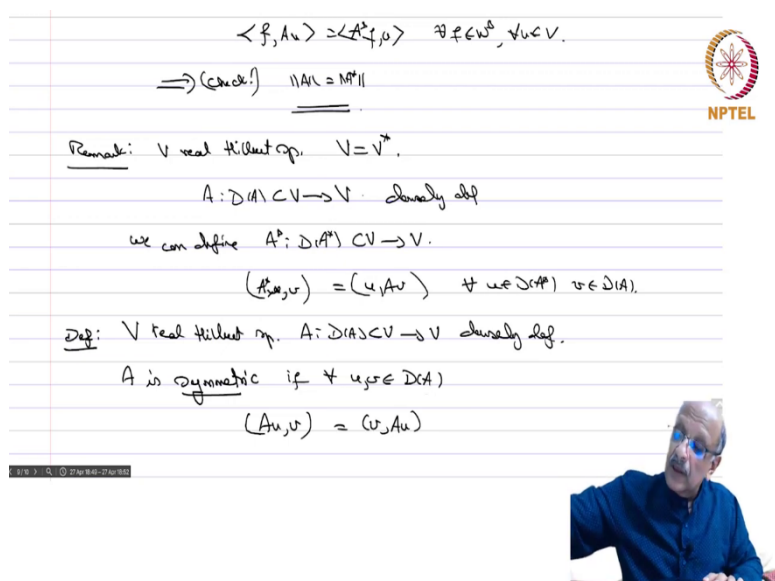 <f, Au> = <A*f, u> ∀ f ∈ W*, ∀ u ∈ V.
⟹ (check!) ||A|| = ||A*||
NPTEL
Remark: V real Hilbert sp. V = V*.
A : D(A) ⊂ V → V densely def
we can define A* : D(A*) ⊂ V → V.
(A*u, v) = (u, Av) ∀ u ∈ D(A*) v ∈ D(A).
Def: V real Hilbert sp. A : D(A) ⊂ V → V densely def.
A is symmetric if ∀ u, v ∈ D(A)
(Au, v) = (v, Au)
9/10 27 Apr 18:40–27 Apr 18:52